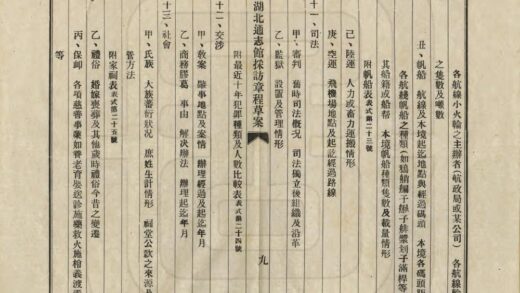 各航線小火輪之主辦者(航政局或某公司) 各航線輪
之隻數及噸數
丑、帆船 航線及本境起訖地點與經過碼頭 本境各碼頭
各航綫帆船之種類(如鴉艄 子 子排槳划子滿桿等
其船籍或船幫 本境帆船種類隻數及載量情形
附帆船表表式第二十三號
己、陸運 人力或畜力運搬情形
庚、空運 飛機場地點及起訖經過路線
十一、司法
甲、審判 舊時司法概況 司法獨立後組織及沿革
乙、監獄 設置及管理情形
附最近十年犯罪種類及人數比較表表式第二十四號
湖北通志館採訪章程草案 九
十二、交涉
甲、教案 肇事地點及案情 辦理經過及起訖年月
乙、商務膠葛 事由 解決辦法 辦理起訖年月
十三、社會
甲、氏族 大族蕃衍狀況 庶姓生計情形 祠堂公款之來源及
管方法
附家祠表表式第二十五號
乙、禮俗 婚嫁喪葬及其他歲時禮俗今昔之變遷
丙、保卹 各項慈善事業如養老育嬰送診施藥救火施棺義渡
等